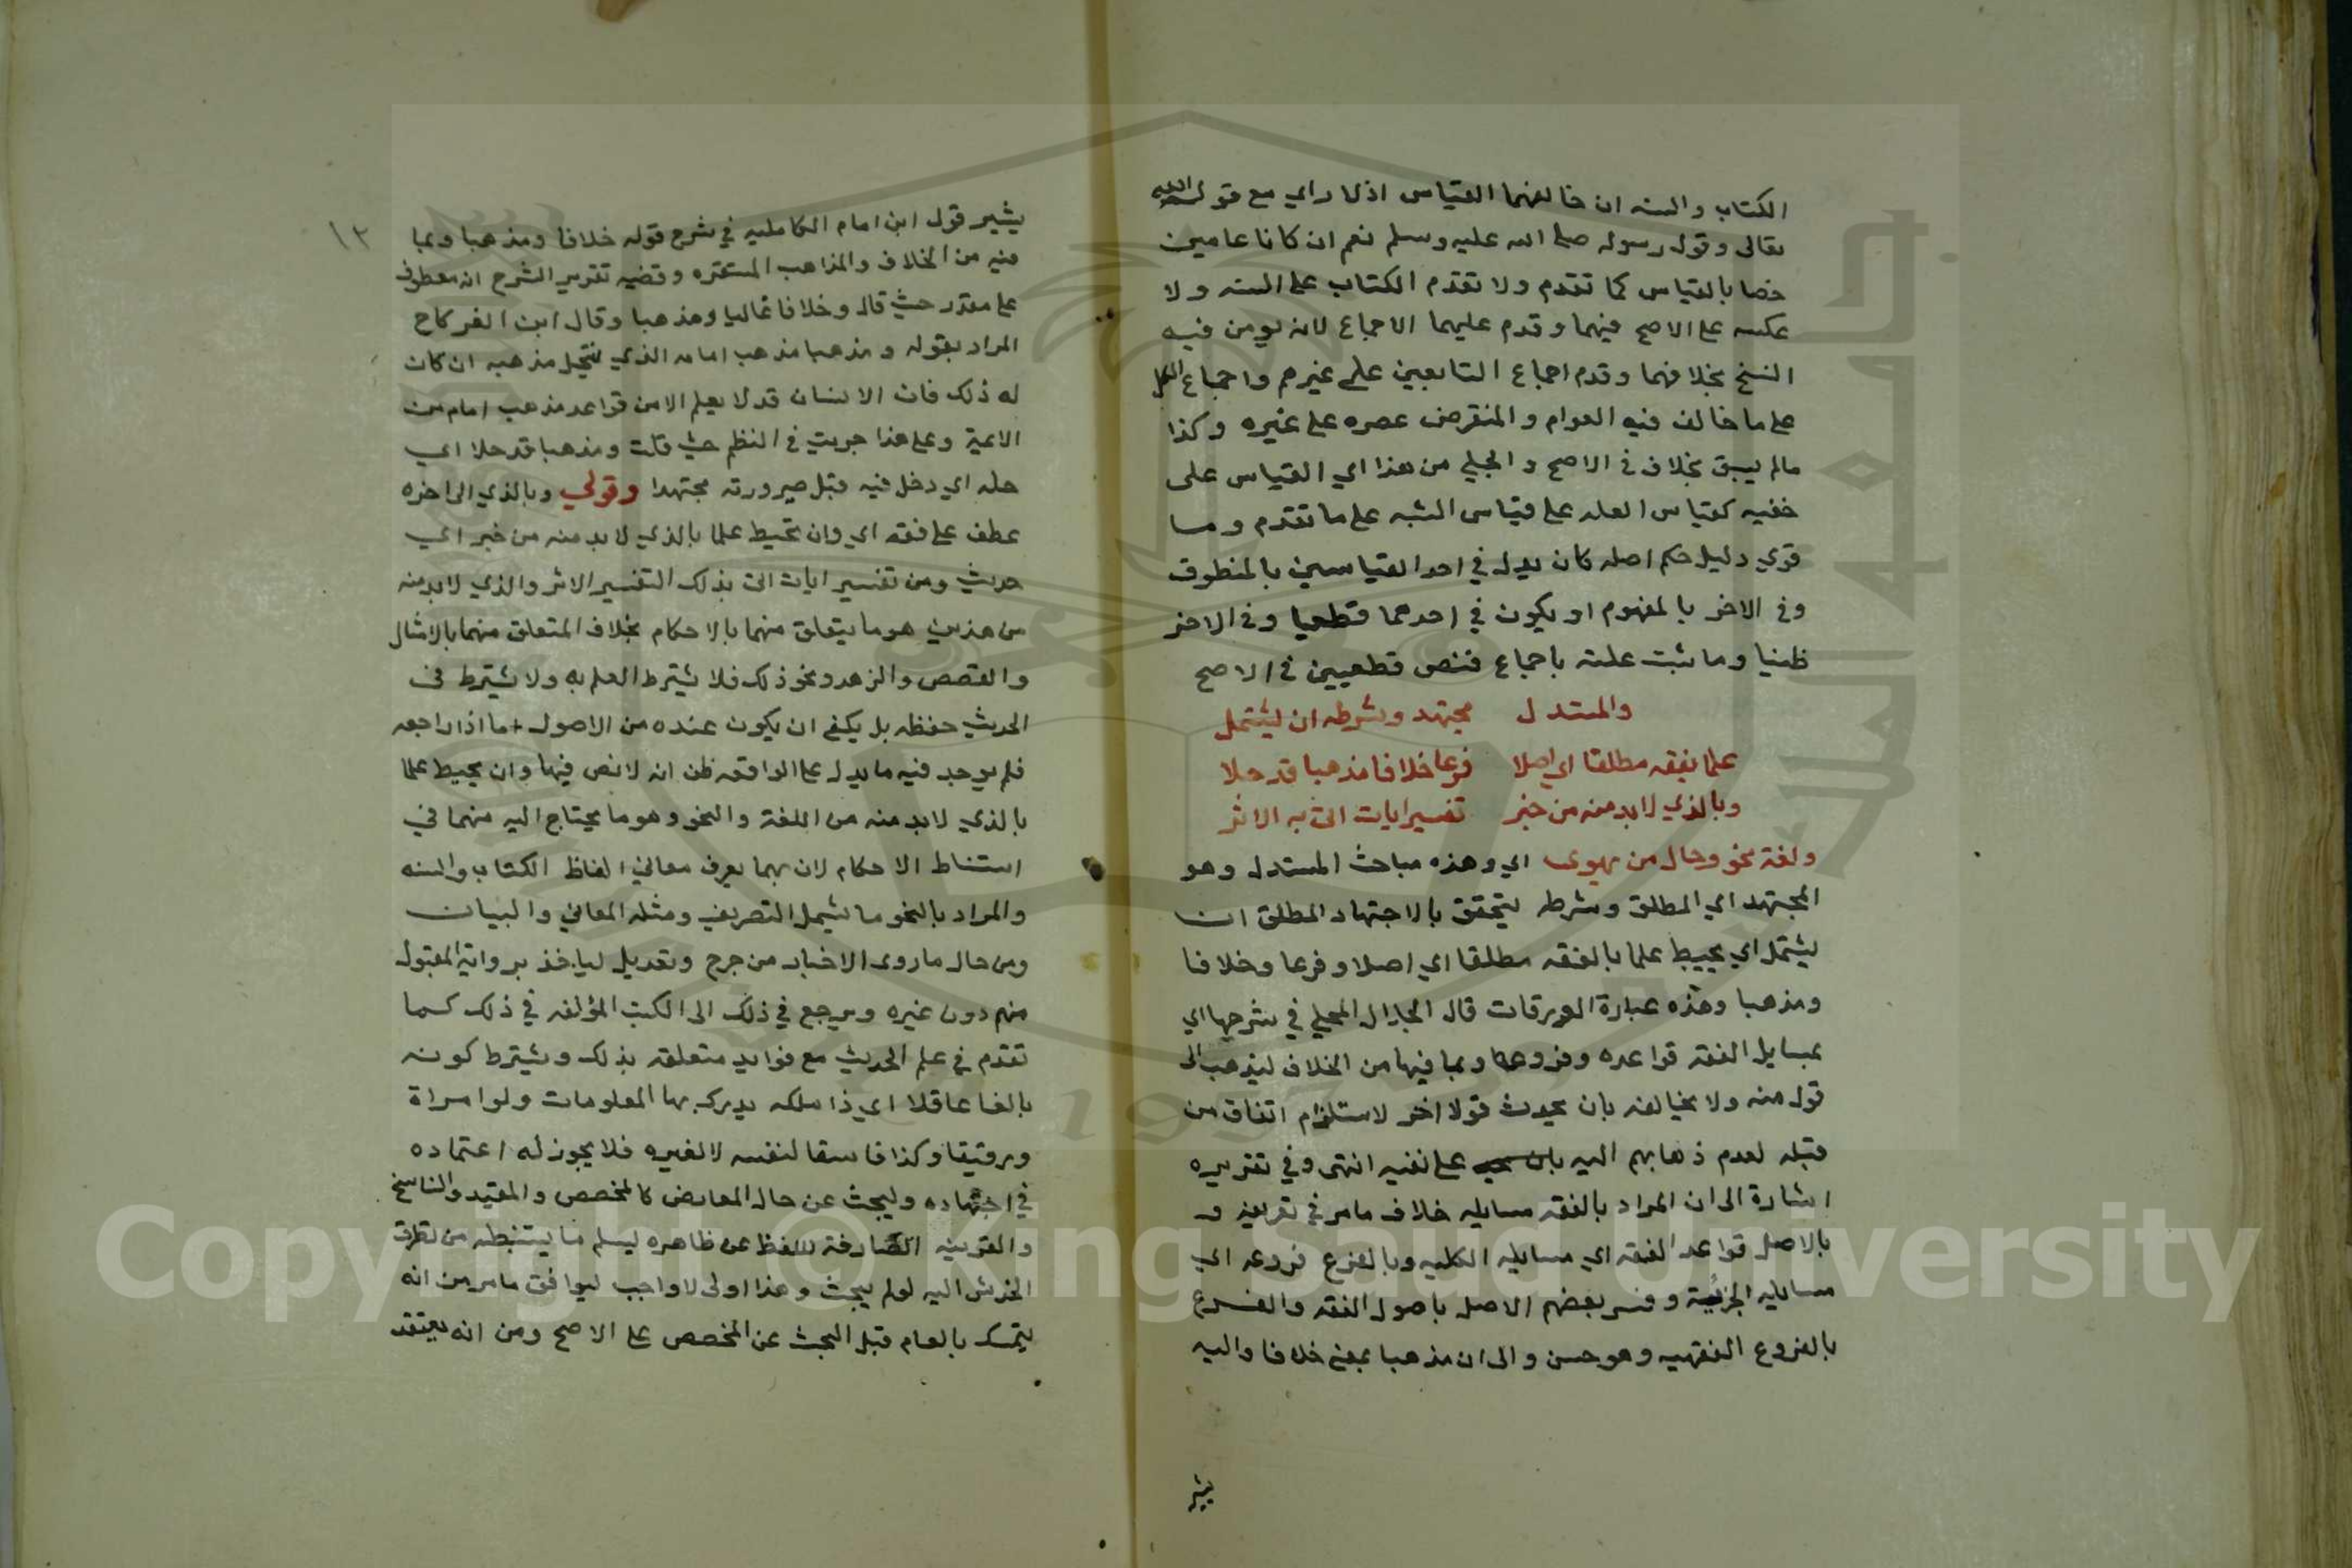 الكتاب والسنه ان خالفهما القياس اذ لا راي مع قول الله
تعالى وقول رسوله صلى الله عليه وسلم نعم ان كانا عامين
خصا بالقياس كما تقدم ولا تقدم الكتاب على السنه ولا
عكسه على الاصح فيهما وقدم عليهما الاجماع لانه يومن فيه
النسخ بخلافهما وقدم اجماع التابعين على غيرهم واجماع الكل
على ما خالف فيه العوام والمنقرض عصره على غيره وكذا
مالم يسبق بخلاف في الاصح والجلي من هذا اي القياس على
خفيه كقياس العله على قياس الشبه على ما تقدم وما
قوي دليل حكم اصله كان يدل في احد القياسين بالمنطوق
وفي الاخر بالمفهوم او يكون في احدهما قطعيا وفي الاخر
ظنيا وما ثبت علته باجماع فنص قطعيين في الاصح
والمستدل مجتهد وشرطه ان يشتمل
علما بفقه مطلقا اي اصلا فرعا خلافا مذهبا قد حلا
وبالذي لابد منه من خبر تفسير ايات اتى به الاثر
ولغة نحو وحال من يهوى اي وهذه مباحث المستدل وهو
المجتهد اي المطلق وشرطه ليتحقق بالاجتهاد المطلق ان
يشتمل اي يحيط علما بالفقه مطلقا اي اصلا وفرعا وخلافا
ومذهبا وهذه عبارة الورقات قال الجلال المحلي في شرحها اي
بمسايل الفقه قواعده وفروعه وبما فيها من الخلاف ليذهب الى
قول منه ولا يخالفه بان يحدث قولا اخر لاستلزام اتفاق من
قبله لعدم ذهابهم اليه على نفيه انتهى وفي تقريره
اشارة الى ان المراد بالفقه مسايله خلاف ما مر في تعريفه و
بالاصل قواعد الفقه اي مسايله الكليه وبالفرع فروعه اي
مسايله الجزئية وفسر بعضهم الاصل باصول الفقه والفرع
بالفروع الفقهيه وهو حسن والى ان مذهبا بمعنى خلافا واليه
يشير
١٢
يشير قول ابن امام الكامليه في شرح قوله خلافا ومذهبا وبما
فيه من الخلاف والمذاهب المستقره وقضيه تقرير الشرح انه معطوف
على مقدر حيث قال وخلافا غالبا ومذهبا وقال ابن الفركاح
المراد بقوله ومذهبا مذهب امامه الذي ينتحل مذهبه ان كان
له ذلك فان الانسان قد لا يعلم الا من قواعد مذهب امام من
الايمة وعلى هذا جريت في النظم حيث قلت ومذهبا قد حلا اي
حله اي دخل فيه قبل صيرورته مجتهدا وقولي وبالذي الى اخره
عطف على فقه اي وان يحيط علما بالذي لابد منه من خبر اي
حديث ومن تفسير ايات اتى بذلك التفسير الاثر والذي لابد منه
من هذين هو ما يتعلق منهما بالاحكام بخلاف المتعلق منهما بالامثال
والقصص والزهد ونحو ذلك فلا يشترط العلم به ولا يشترط في
الحديث حفظه بل يكفي ان يكون عنده من الاصول ما اذا راجعه
فلم يوجد فيه ما يدل على الواقعه ظن انه لا نص فيها وان يحيط علما
بالذي لابد منه من اللغة والنحو وهو ما يحتاج اليه منهما في
استنباط الاحكام لان بهما يعرف معاني الفاظ الكتاب والسنه
والمراد بالنحو ما يشمل التصريف ومثله المعاني والبيان
ومن حال ما روى الاخبار من جرح وتعديل لياخذ برواية المقبول
منهم دون غيره ويرجع في ذلك الى الكتب المؤلفه في ذلك كما
تقدم في علم الحديث مع فوايد متعلقه بذلك ويشترط كونه
بالغا عاقلا اي ذا ملكه يدرك بها المعلومات ولو امراة
ورقيقا وكذا فاسقا لنفسه لا لغيره فلا يجوز له اعتماده
في اجتهاده وليبحث عن حال المعارض كالمخصص والمقيد والناسخ
والقرينه الصارفة للفظ عن ظاهره ليسلم ما يستنبطه من تطرق
الخدش اليه لو لم يبحث وهذا اولى لا واجب ليوافق ما مر من انه
يتمسك بالعام قبل البحث عن المخصص على الاصح ومن انه يعتقد
Copyright © King Saud University